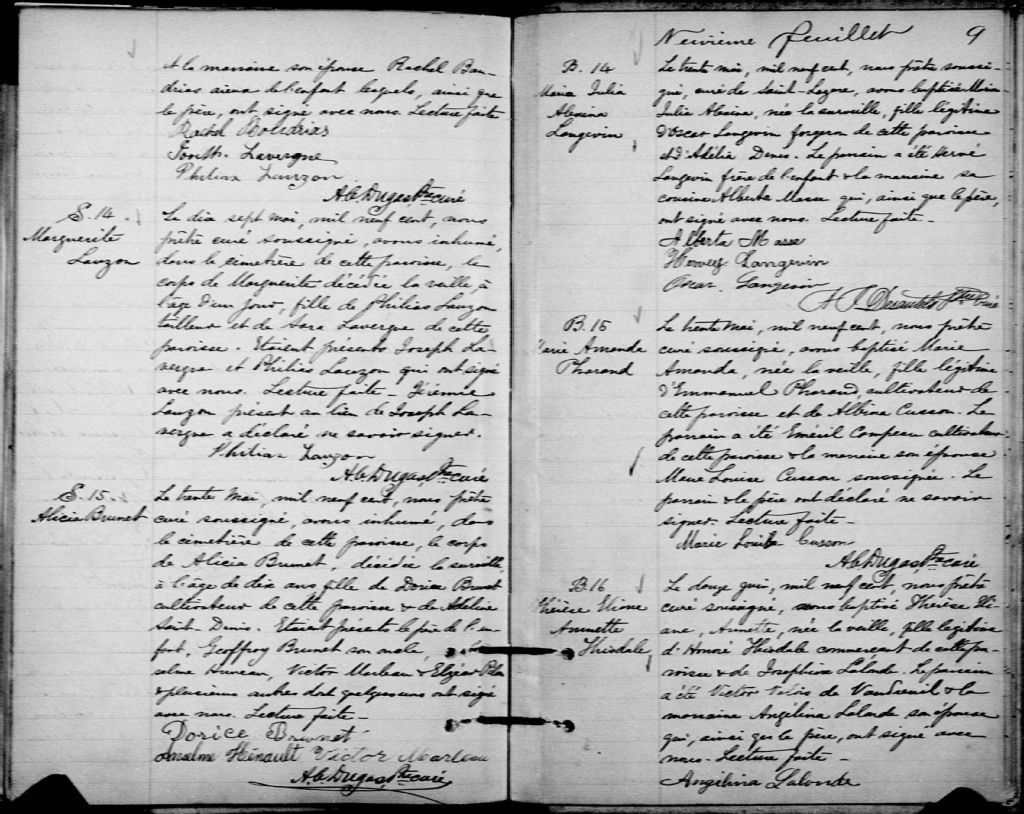 et la marraine son épouse Rachel Bou-
drias aïeux de l'enfant lesquels, ainsi que
le père, ont signé avec nous. Lecture faite
Rachel Boudrias
Joseph Lavergne
Philias Lauzon
A.C. Dugas, Ptre curé
S. 14.
Marguerite
Lauzon
Le dix sept mai, mil neuf cent, nous
prêtre curé soussigné, avons inhumé,
dans le cimetière de cette paroisse, le
corps de Marguerite décédée la veille, à
l'âge d'un jour, fille de Philias Lauzon
tailleur et de Sara Lavergne de cette
paroisse. Etaient présents Joseph La-
vergne et Philias Lauzon qui ont signé
avec nous. Lecture faite - Jérémie
Lauzon présent au lieu de Joseph La-
vergne a déclaré ne savoir signer.
Philias Lauzon
A.C. Dugas, Ptre curé
S. 15.
Alicia Brunet
Le trente mai, mil neuf cent, nous prêtre
curé soussigné, avons inhumé, dans
le cimetière de cette paroisse, le corps
de Alicia Brunet, décédée la surveille,
à l'âge de dix ans fille de Dorice Brunet
cultivateur de cette paroisse & de Adeline
Saint-Denis. Etaient présents le père de l'en-
fant, Geoffroy Brunet son oncle,
selme Huneau, Victor Marleau & Elzéar
& plusieurs autres dont quelques uns ont signé
avec nous. Lecture faite -
Dorice Brunet
Anselme Hénault Victor Marleau
A.C. Dugas, Ptre curé
Neuvième feuillet 9
B. 14
Maria Julia
Alexina
Langevin
Le trente mai, mil neuf cent, nous prêtre soussi-
gné, curé de Saint-Lazare, avons baptisé Maria
Julia Alexina, née la surveille, fille légitime
d'Oscar Langevin forgeron de cette paroisse
et d'Adélia Denis. Le parrain a été Hervé
Langevin frère de l'enfant & la marraine sa
cousine Alberta Masse qui, ainsi que le père,
ont signé avec nous. Lecture faite -
Alberta Masse
Hervey Langevin
Oscar Langevin
Ptre Curé
B. 15
Marie Amanda
Pharand
Le trente mai, mil neuf cent, nous prêtre
curé soussigné, avons baptisé Marie
Amanda, née la veille, fille légitime
d'Emmanuel Pharand, cultivateur de
cette paroisse et de Albina Cusson. Le
parrain a été Eméril Campeau cultivateur
de cette paroisse & la marraine son épouse
Marie Louise Cusson soussignée. Le
parrain & le père ont déclaré ne savoir
signer. Lecture faite -
Marie Louise Cusson
A.C. Dugas, Ptre curé
B. 16
Thérèse Eliane
Annette
Thisdale
Le douze juin, mil neuf cent, nous prêtre
curé soussigné, avons baptisé Thérèse Eli-
ane, Annette, née la veille, fille légitime
d'Honoré Thisdale commerçant de cette pa-
roisse & de Joséphine Lalonde. Le parrain
a été Victor Valois de Vaudreuil & la
marraine Angélina Lalonde son épouse
qui, ainsi que le père, ont signé avec
nous. Lecture faite -
Angélina Lalonde